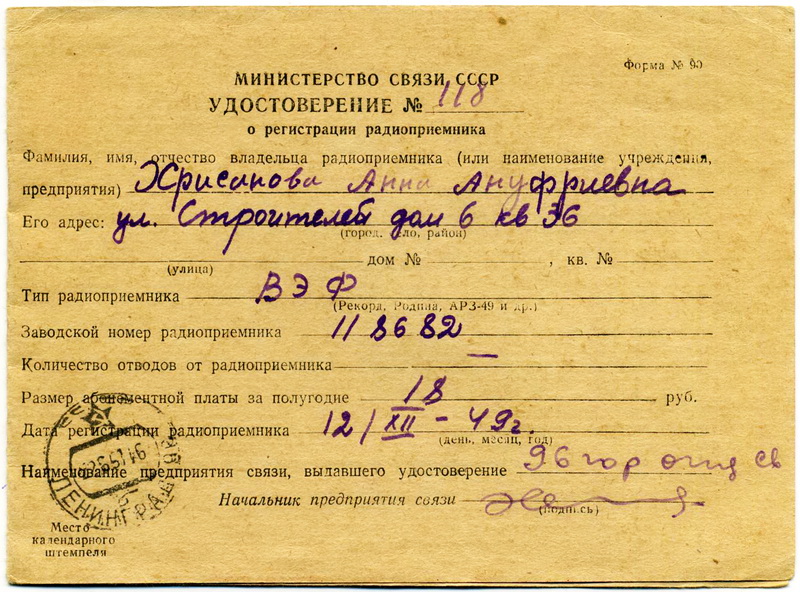 Форма № 90
МИНИСТЕРСТВО СВЯЗИ СССР
УДОСТОВЕРЕНИЕ № 118
о регистрации радиоприемника
Фамилия, имя, отчество владельца радиоприемника (или наименование учреждения,
предприятия) Хрисанова Анна Ануфриевна
Его адрес: ул. Строителей дом 6 кв 36
(город, село, район)
дом № , кв. №
(улица)
Тип радиоприемника ВЭФ
(Рекорд, Родина, АРЗ-49 и др.)
Заводской номер радиоприемника 118682
Количество отводов от радиоприемника —
Размер абонементной платы за полугодие 18 руб.
Дата регистрации радиоприемника 12/XII-49г.
(день, месяц, год)
Наименование предприятия связи, выдавшего удостоверение 96 гор отд св
Начальник предприятия связи
(подпись)
Место
календарного
штемпеля
ЛЕНИНГРАД